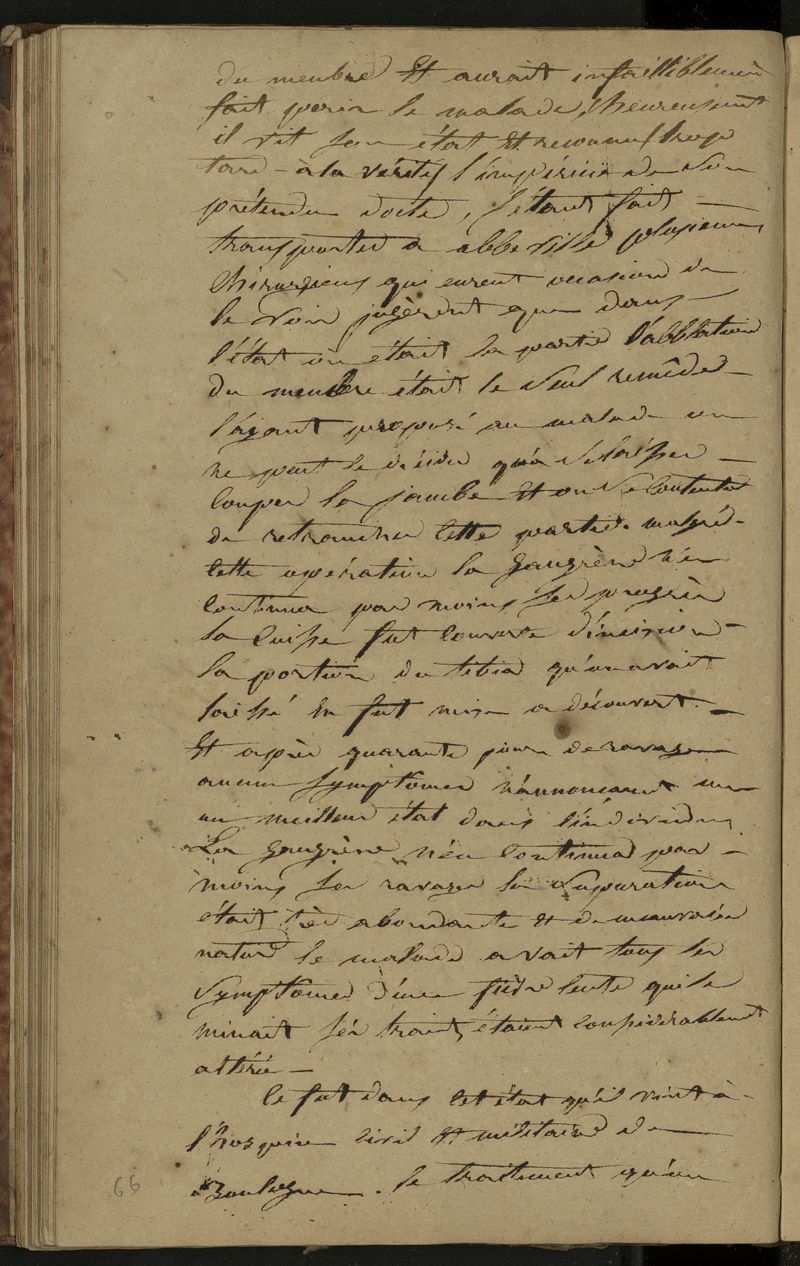 du membre Et aurait infailliblement
fait perir le malade, heureusement
il vit son état Et reconnu trop
tard - à la vérité l'impéricie de son
prétendu docte, s'étant fait —
transporter a abbeville plusieurs
Chirurgiens qui eurent occasion de
le voir jugèrent que dans —
l'état où était la partie l'abblation
du membre était le seul remède —
l'ayant proposé au malade on
ne peut le décider qu'a se laisser —
couper la jambe Et on se contenta
de retrancher cette partie. malgré
cette opération la Gangrène n'en
continua pas moins ses progrès
la cuisse fut couverte d'incisions
la portion du tibia qu'on avait
laissé en fut mise a découvert. —
Et après quarante jours de ravage
aucun symptomes n'annoncaient
un meilleur état dans l'individu,
La Gangrène n'en continua pas —
moins ses ravages la supuration
était très abondante Et de mauvaise
nature le malade avait tous les
symptomes d'une fièvre lente qui le
minait ses traits étaient considérablement
altérés —
Ce fut dans cet état qu'il vint à
l'hospice civil Et militaire de
Boulogne. le traitement qu'on
66